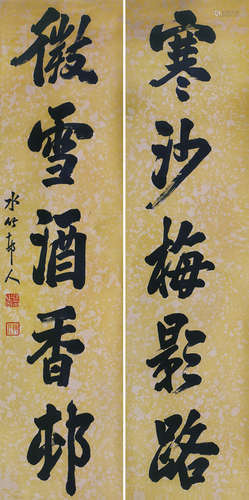 寒沙梅影路
微雪酒香邨
水竹邨人